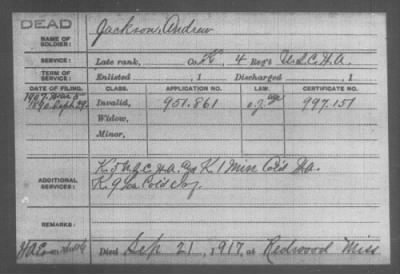 DEAD
Jackson, Andrew
NAME OF SOLDIER:
SERVICE: Late rank, Co. K, 4 Reg't U.S.C.H.A.
TERM OF SERVICE: Enlisted , 1 Discharged , 1
DATE OF FILING. CLASS. APPLICATION NO. LAW. CERTIFICATE NO.
1907 Mar. 5 age
1890 Sept 29 Invalid, 951.861 o.j. 997.151
Widow,
Minor,
K. 5 U.S.C.H.A. K. 1 Miss Cold H.A.
ADDITIONAL SERVICES: K. 9 La Cold Inf.
REMARKS:
Died Sep 21, 1917, at Redwood Miss